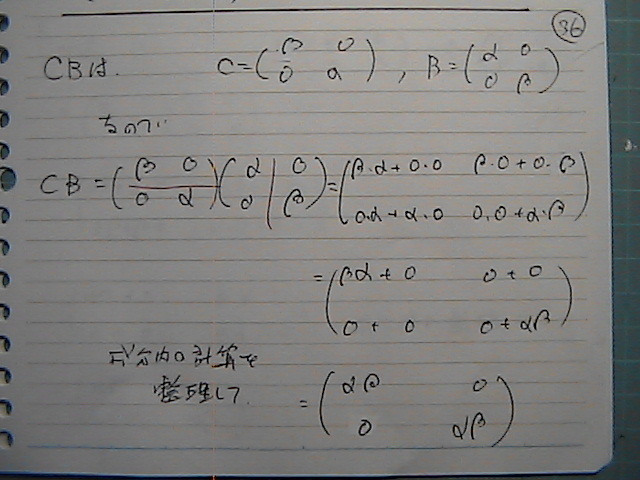 36
CBは. C=(β 0 0 α), B=(α 0 0 β)
なので
CB = (β 0 0 α)(α 0 0 β) = (β·α+0·0 β·0+0·β 0·α+α·0 0·0+α·β)
= (βα+0 0+0 0+0 0+αβ)
成分内の計算を
整理して. = (αβ 0 0 αβ)